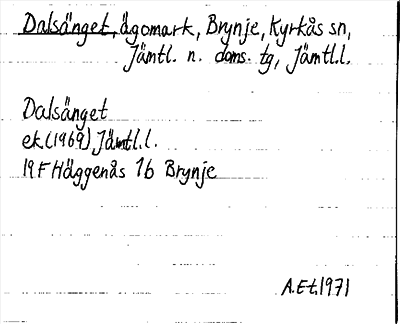 Dalsänget, ägomark, Brynje, Kyrkås sn,
Jämtl. n. doms. tg, Jämtl.l.
Dalsänget
ek.(1969) Jämtl.l.
19F Häggenås 1b Brynje
A.Et.1971